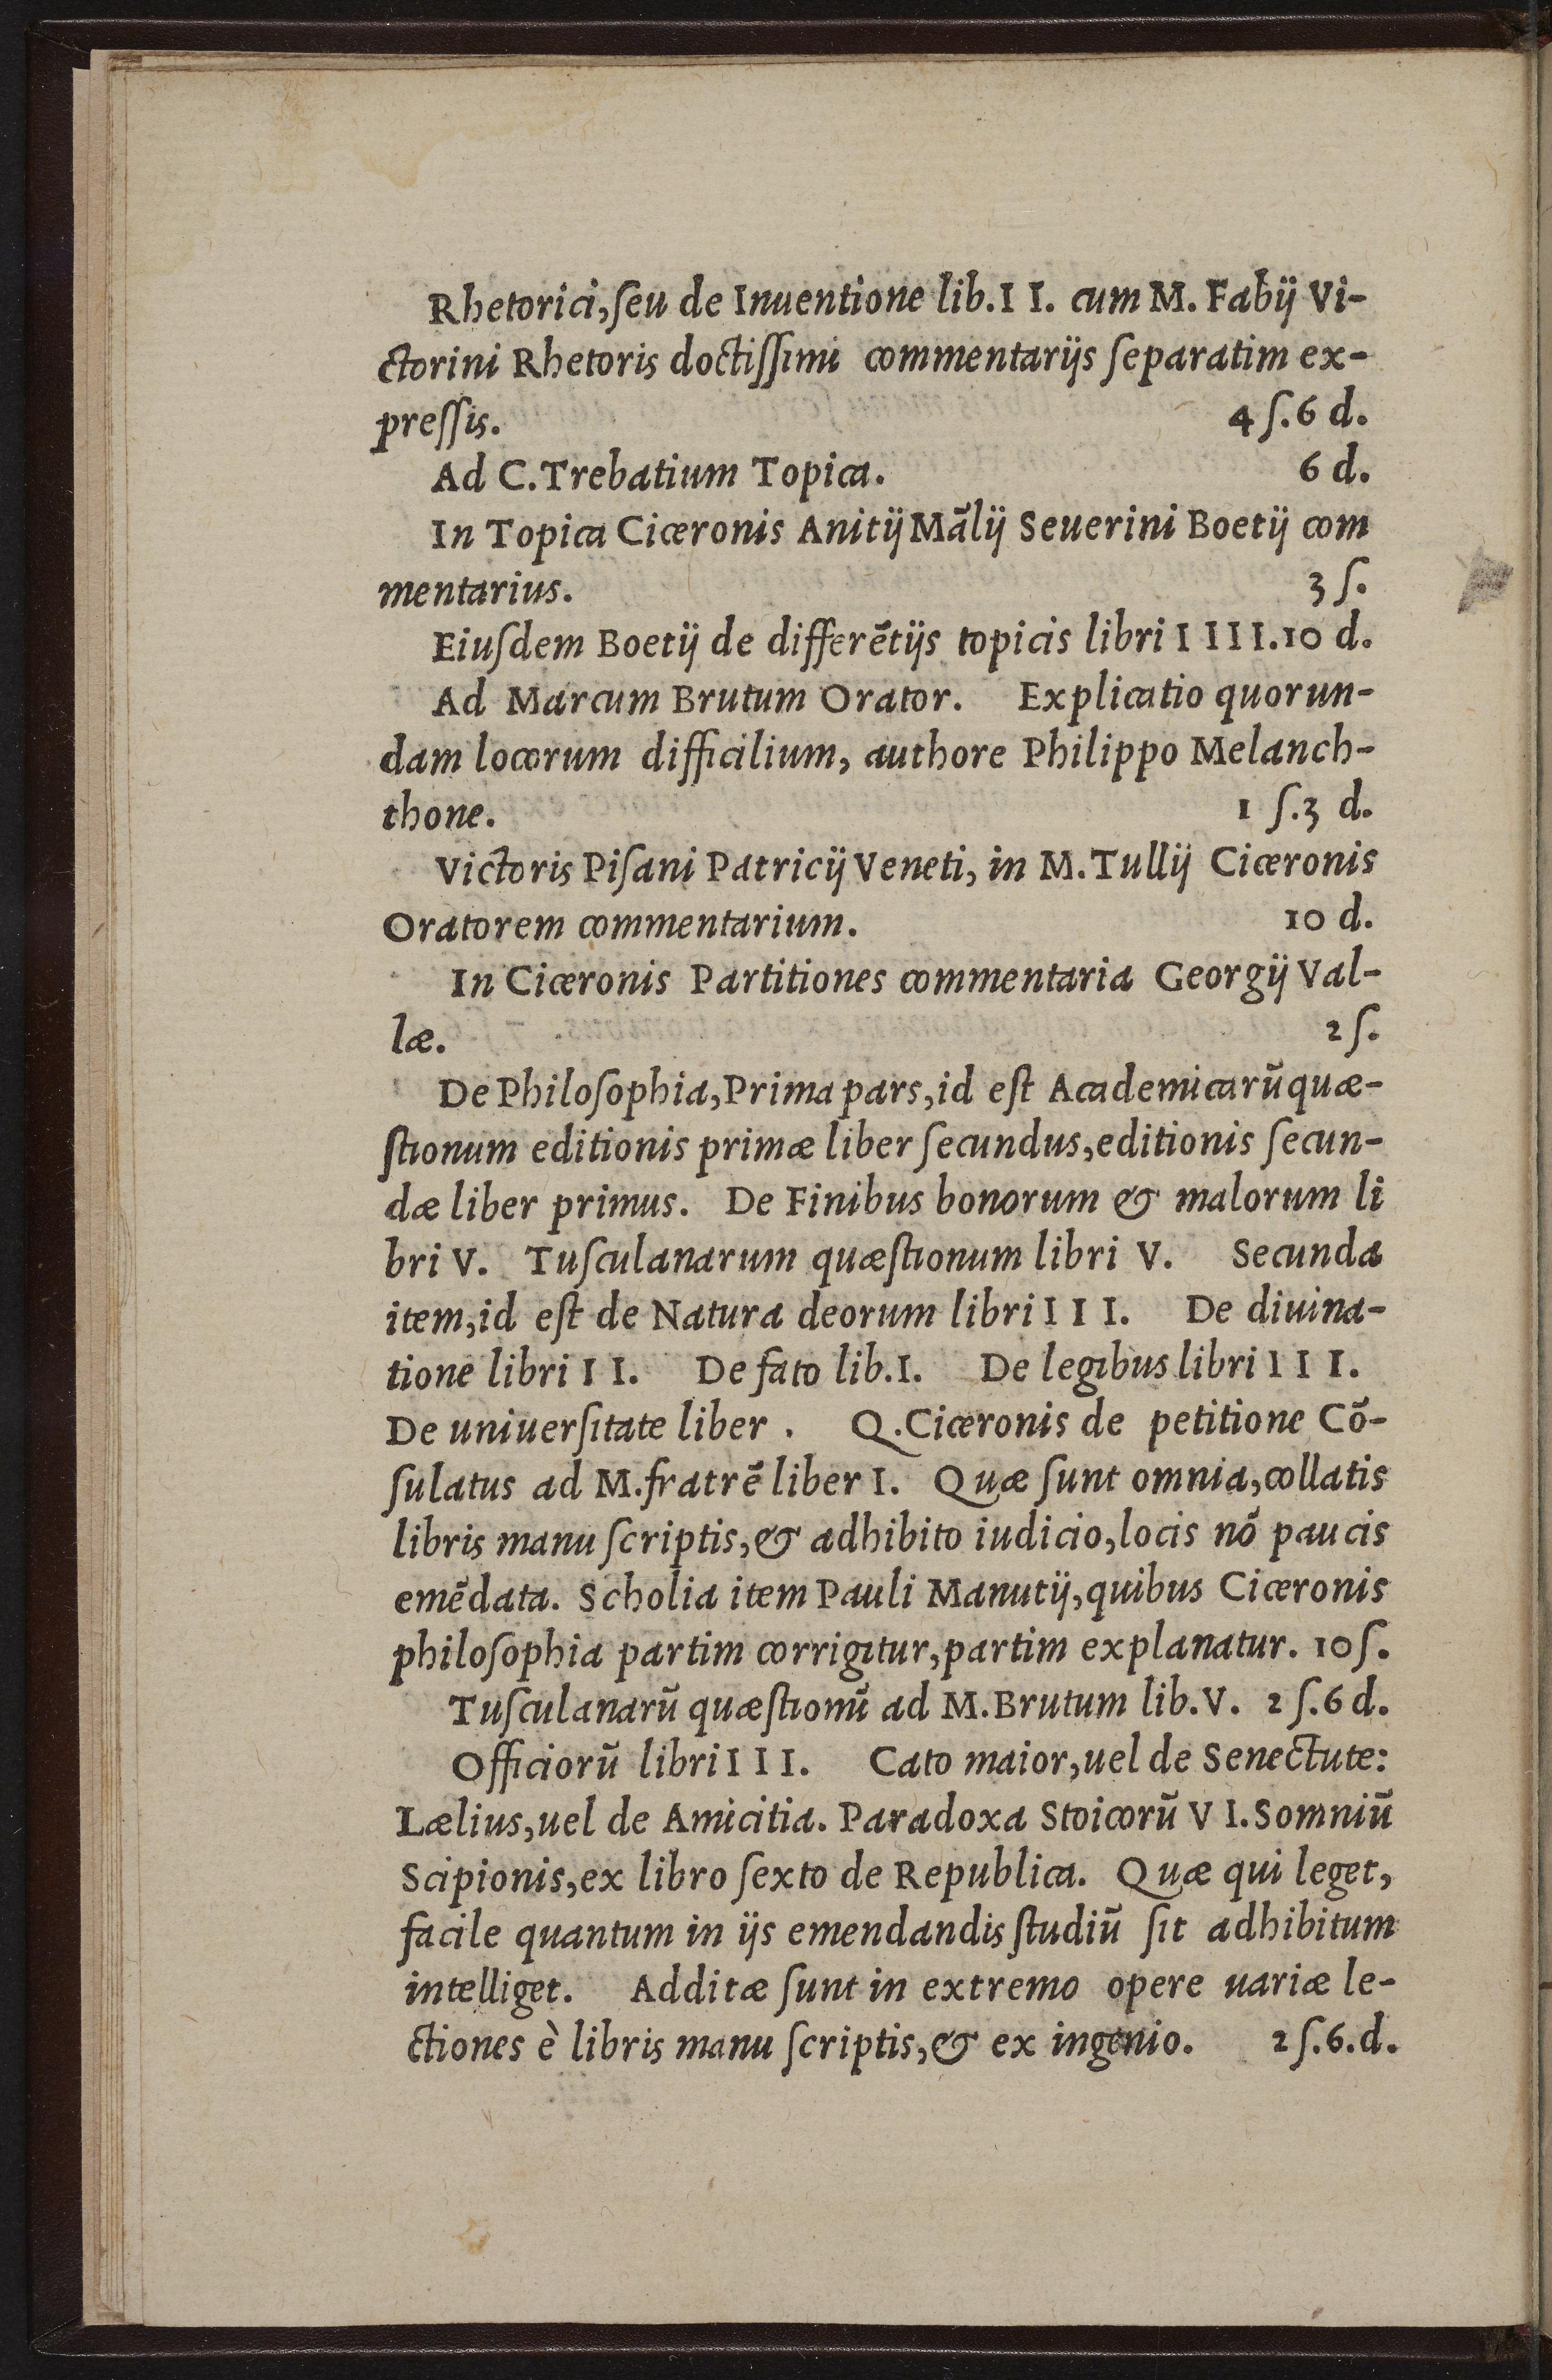 Rhetorici, ſeu de Inuentione lib.I I. cum M. Fabij Vi-
ctorini Rhetoris doctiſſimi commentarijs ſeparatim ex-
preſſis. 4 ſ.6 d.
Ad C.Trebatium Topica. 6 d.
In Topica Ciceronis Anitij Mālij Seuerini Boetij com
mentarius. 3 ſ.
Eiuſdem Boetij de differētijs topicis libri I III.10 d.
Ad Marcum Brutum Orator. Explicatio quorun-
dam locorum difficilium, authore Philippo Melanch-
thone. 1 ſ.3 d.
Victoris Piſani Patricij Veneti, in M.Tullij Ciceronis
Oratorem commentarium. 10 d.
In Ciceronis Partitiones commentaria Georgij Val-
læ. 2 ſ.
De Philoſophia,Prima pars,id eſt Academicarū quæ-
ſtionum editionis primæ liber ſecundus,editionis ſecun-
dæ liber primus. De Finibus bonorum & malorum li
bri V. Tuſculanarum quæſtionum libri V. Secunda
item,id eſt de Natura deorum libri I I I. De diuina-
tione libri I I. De fato lib.I. De legibus libri I I I.
De uniuerſitate liber . Q.Ciceronis de petitione Cō-
ſulatus ad M.fratrē liber I. Quæ ſunt omnia,collatis
libris manu ſcriptis,& adhibito iudicio,locis nō paucis
emēdata. Scholia item Pauli Manutij,quibus Ciceronis
philoſophia partim corrigitur,partim explanatur. 10 ſ.
Tuſculanarū quæſtionū ad M.Brutum lib.V. 2 ſ.6 d.
Officiorū libri I I I. Cato maior,uel de Senectute:
Lælius,uel de Amicitia. Paradoxa Stoicorū V I. Somniū
Scipionis,ex libro ſexto de Republica. Quæ qui leget,
facile quantum in ijs emendandis ſtudiū ſit adhibitum
intelliget. Additæ ſunt in extremo opere uariæ le-
ctiones è libris manu ſcriptis,& ex ingenio. 2 ſ.6.d.